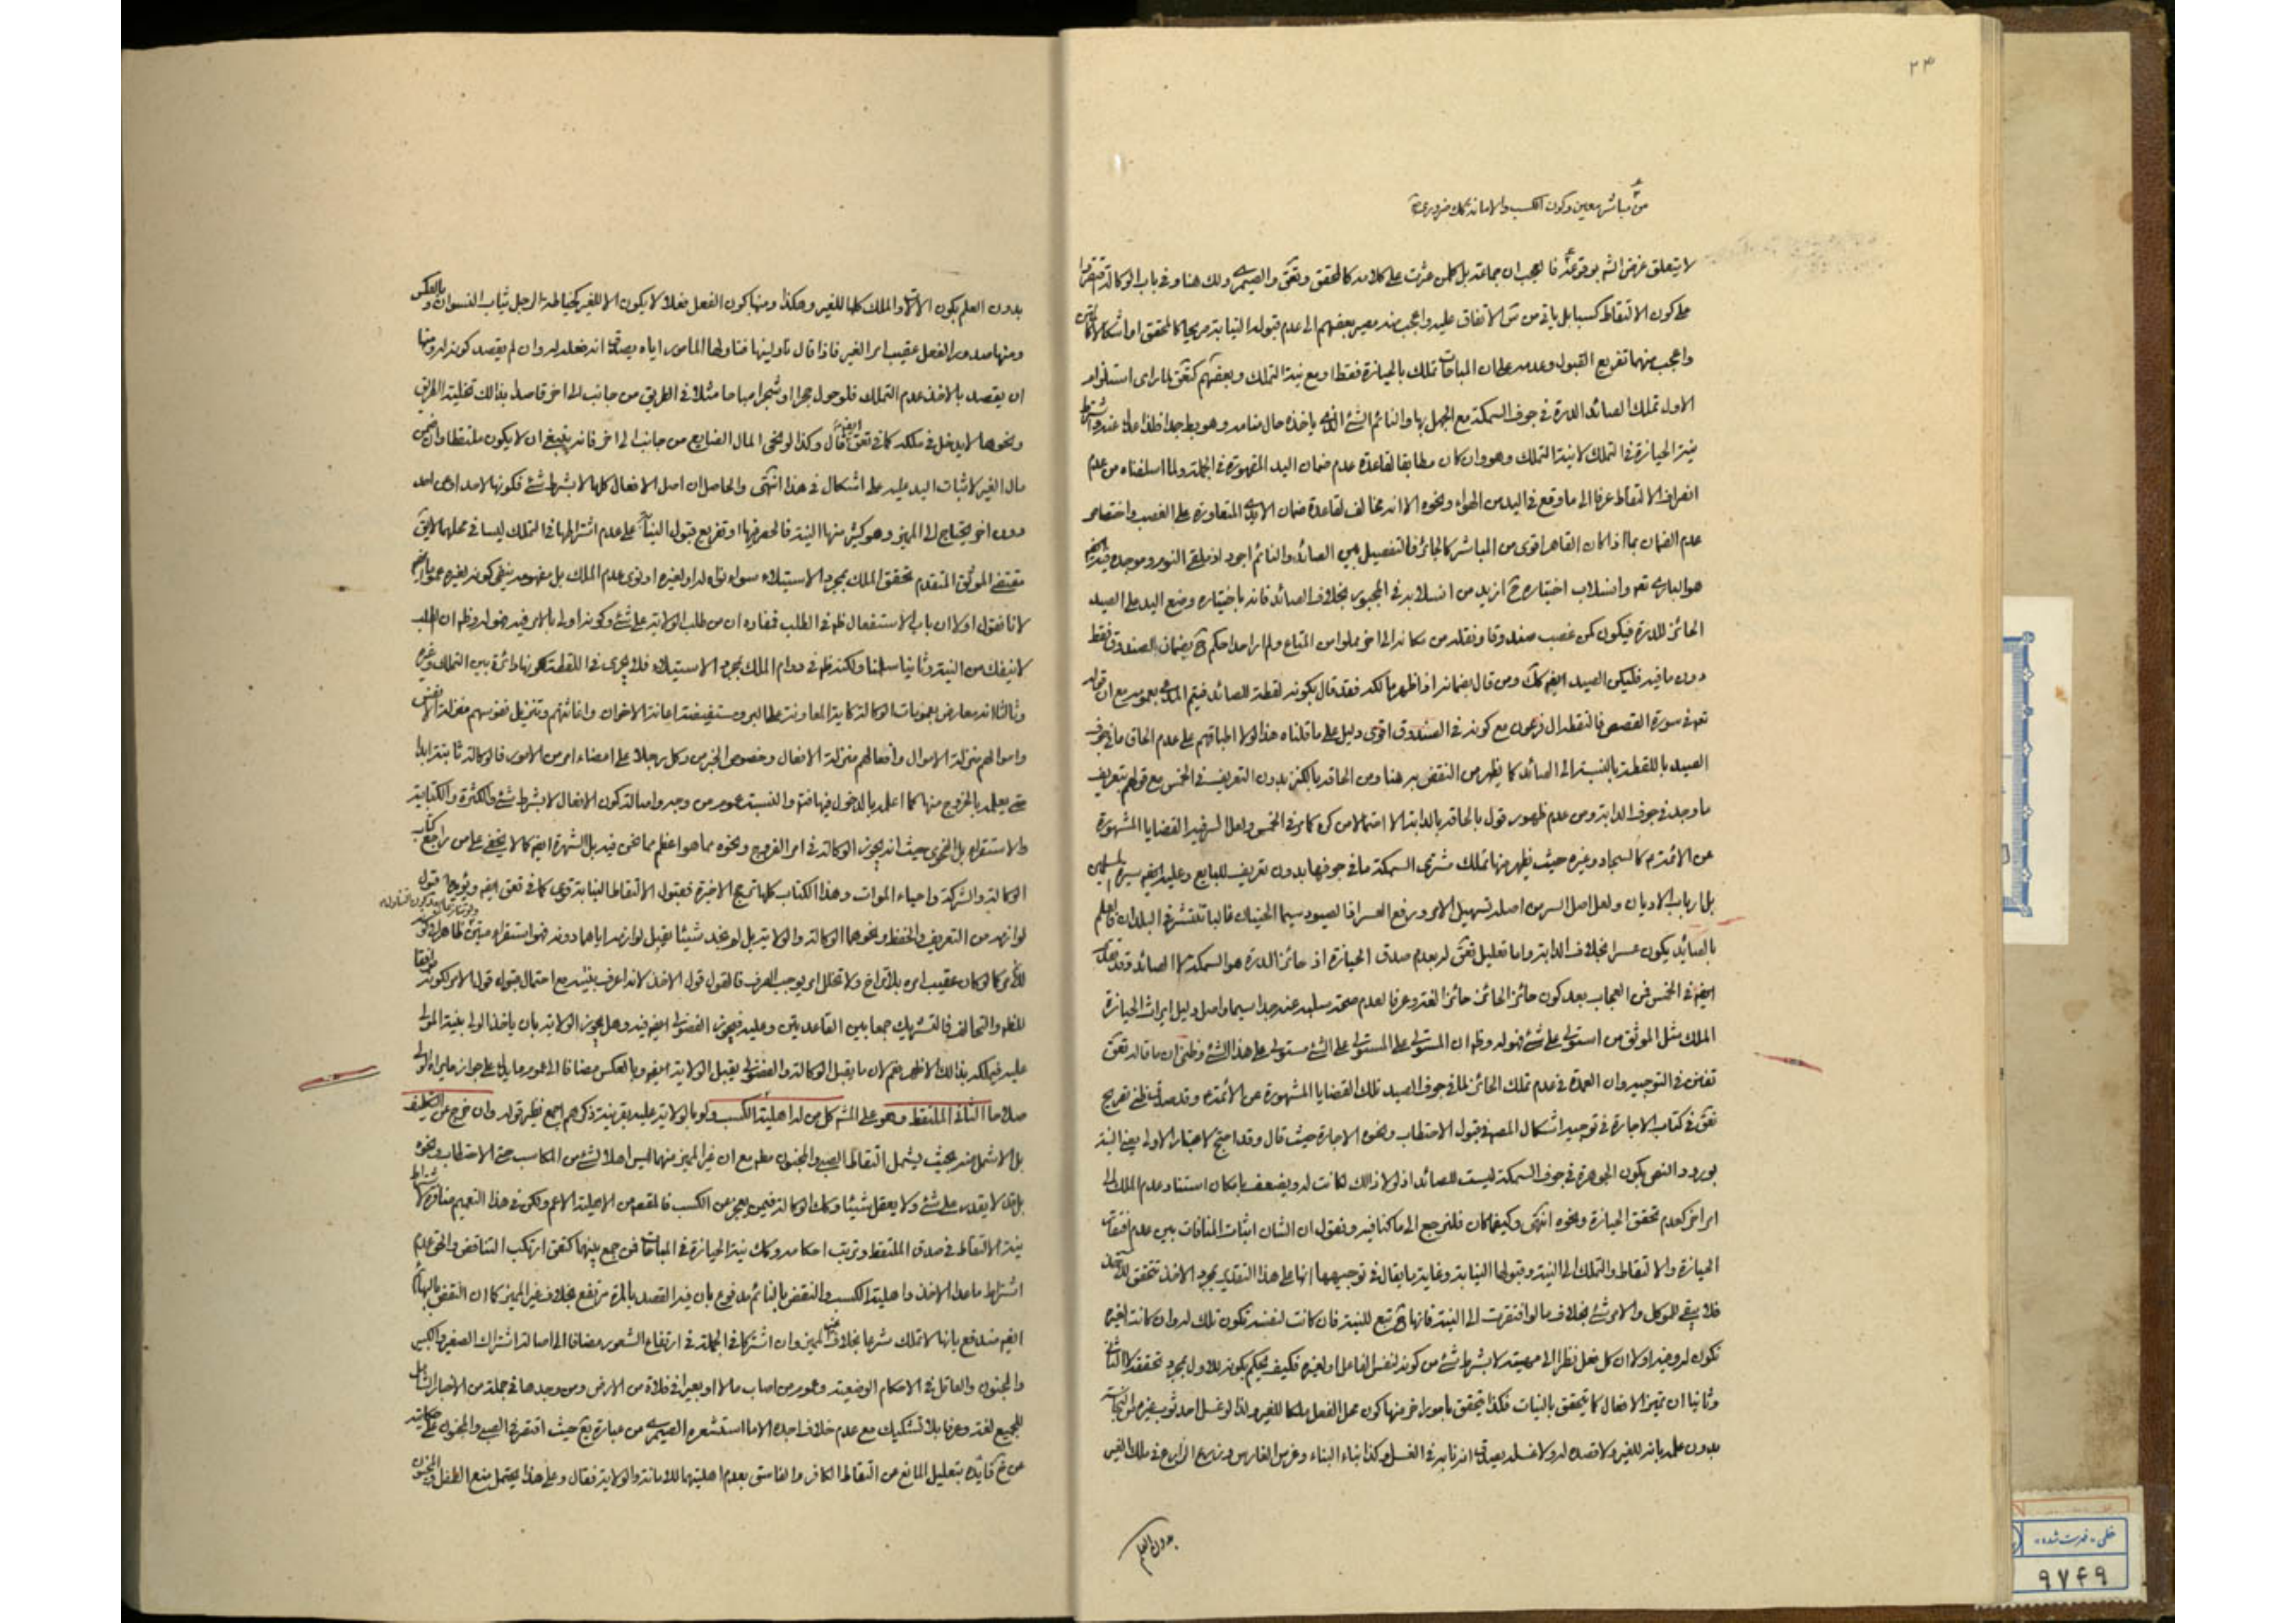 ٢٣
من مباشر معين وكون الكسب والامانة ضرورى
لا يتعلق غرض الشه بوقوعه فا لعجب ان جماعة بل كلمن عثرت على كلامه كالمحقق وتعق والصيمرى ولك هنا وفى باب الوكالة
على كون الالتقاط كسبا بل ياتى من ش الاتفاق عليه واعجب منه مصير بعضهم الى عدم قبوله النيابة صريحا كالمحقق او اشكالا
واعجب منهما تفريع القبول وعدمه على ان المباحات تملك بالحيازة فقط او مع نية التملك وبعضهم كتعق لما راى استلزام
الاول تملك الصائد الدرة فى جوف السمكة مع الجهل بها والنائم الشئ الذى ياخذه حال منامه وهو بط جدا
نية الحيازة فى التملك لا نية التملك وهو وان كان مطابقا لقاعدة عدم ضمان اليد المقهورة فى الجملة ولما اسلفناه من عدم
انصراف الالتقاط عرفا الى ما وقع فى اليد من الهواء ونحوه الا انه مخالف لقاعدة ضمان الايدى المتعاورة على الغصب واختصاص
عدم الضمان بما اذا كان القاهر اقوى من المباشر كالجائر فالتفصيل بين الصائد والنائم اجود اذ ملقى النوم وموجده فيه
هو البارى تعه وانسلاب اختياره ح ازيد من انسلابه فى المجبور بخلاف الصائد فانه باختياره وضع اليد على الصيد
الحائز للدرة فيكون كمن غصب صندوقا ونقله من مكانه الى اخر مملوا من المتاع ولم ار احدا حكم ح بضمان الصندوق فقط
دون ما فيه فليكن الصيد ايضا كك ومن قال بضمانه اذا ظهر مالكه فقد قال بكونه لقطة للصائد فيتم المدعى بعمومه مع ان قوله
تعه فى سورة القصص فالتقطه ال فرعون مع كونه فى الصندوق اقوى دليل على ما قلناه هذا لولا اطباقهم على عدم الحاق ما فى جوف
الصيد باللقطة بالنسبة الى الصائد كما يظهر من النقض به هنا ومن الحاقه بالكنز بدون التعريف فى الخمس مع قولهم بتعريف
ما وجد فى جوف الدابة ومن عدم ظهور قول بالحاقه بالدابة الا احتمالا من كره كما مر فى الخمس ولعل السر فيه القضايا المشهورة
عن الائمة م كالسجاد وغيره حيث يظهر منها تملك مشترى السمكة ما فى جوفها بدون تعريف للبايع وعليه ايضا سيرة المسلمين
بل ارباب الاديان ولعل اصل السر من اصله تسهيل الامر ورفع العسر اذ الصيود سيما الحيتان غالبا تنتشر فى البلدان فالعلم
بالصائد يكون عسرا بخلاف الدابة واما تعليل تعق له بعدم صدق الحيازة اذ حائز الدرة هو السمكة لا الصائد
ايضا فى الخمس فمن العجاب بعد كون حائز الحائز حائزا لغة وعرفا لعدم صحة سلبه عنه جدا سيما واصل دليل ايراث الحيازة
الملك مثل الموثق من استولى على شئ فهو له وظه ان المستولى على المستولى على الشئ مستولى على هذا الشئ وظنى ان ما قاله تعق
تفنن فى التوجيه وان العمدة فى عدم تملك الحائز لما فى جوف الصيد تلك القضايا المشهورة عن الائمة م وقد صدق ظنى تصريح
تعق فى كتاب الاجارة فى توجيه اشكال المصه فى قبول الاحتطاب ونحوه الاجارة حيث قال وقد احتج لاعتبار الاولى يعنى النية
بورود النص بكون الجوهرة فى جوف السمكة ليست للصائد اذ لولا ذالك لكانت له ويضعف بامكان استناد عدم الملك الى
امر اخر كعدم تحقق الحيازة ونحوه انتهى وكيفما كان فلنرجع الى ما كنا فيه ونقول ان الشان اثبات المنافات بين عدم افتقار
الحيازة والالتقاط والتملك الى النية وقبولها النيابة وغاية ما يقال فى توجيهها انها على هذا التقدير بمجرد الاخذ تتحقق
فلا يبقى للموكل والامر شئ بخلاف ما لو افتقرت الى النية فانها ح تتبع للنية فان كانت لنفسه تكون تلك له وان كانت لغيره
تكون له وفيه اولا ان كل فعل نظرا الى مهيته لا بشرط شئ من كونه لنفس الفاعل او لغيره فكيف يحكم بكونه للاول بمجرد تحققه لا الثانى
وثانيا ان تميز الافعال كما يتحقق بالنيات فكذا يتحقق بامور اخر منها كون محل الفعل ملكا للغير ولذا لو غسل احد ثوب غيره من النجاسة
بدون علمه بانه للغير ولا قصده له ولا غسله يصدق انه نايبه فى الغسل وكذا بناء البناء وغرس الغارس وزرع الزارع فى ملك الغير
بدون العلم
بدون العلم بكون الالات والملك كلها للغير وهكذا ومنها كون الفعل فعلا لا يكون الا للغير كخياطة الرجل ثياب النسوان وبالعكس
ومنها صدور الفعل عقيب امر الغير فاذا قال ناولينها فناولها المامور اياه يصدق انه فعله له وان لم يقصد كونه له ومنها
ان يقصد بالاخذ عدم التملك فلو حول حجرا او شجرا مباحا مثلا فى الطريق من جانب الى اخر قاصدا بذالك تخلية الطريق
ونحوها لا يدخل فى ملكه كما فى تعق ايضا قال وكذا لو نحى المال الضايع من جانب الى اخر فانه ينبغى ان لا يكون ملتقطا وان ضمن
مال الغير لاثبات اليد عليه على اشكال فى هذا انتهى والحاصل ان اصل الافعال كلها لا بشرط شئ فكونها لاحد اوى احد
دون اخر يحتاج الى المميز وهو كثير منها النية فالحصر فيها او تفريع قبول النيابة على عدم اشتراطها فى التملك ليسا فى محلهما لايق
مقتضى الموثق المتقدم تحقق الملك بمجرد الاستيلاء سواء نواه له او لغيره او نوى عدم الملك بل مفهومه ينفى كونه لغيره
لانا نقول اولا ان باب الاستفعال ظه فى الطلب فمفاده ان من طلب الولاية على شئ وكونه اولى بالامر فيه فهو له وظه ان الطلب
لا ينفك من النية وثانيا سلمنا ولكنه ظه فى دوام الملك بمجرد الاستيلاء فلا يجرى فى اللقطة لكونها دائرة بين التملك وغيره
وثالثا انه معارض بعمومات الوكالة كاية المعاونة على البر ومستفيضة اعانة الاخوان واغاثتهم وتنزيل نفوسهم منزلة الانفس
واموالهم منزلة الاموال وافعالهم منزلة الافعال وخصوص الخبر من وكل رجلا على امضاء امر من الامور فالوكالة ثابتة ابدا
حتى يعلمه بالخروج منها كما اعلمه بالدخول فيها فتم والنسبة عموم من وجه واصالة كون الافعال لا بشرط شئ والكثرة والكتابة
والاستقراء بل الفحوى حيث انه يجوز الوكالة فى امر الفروج ونحوه مما هو اعظم مما نحن فيه بل الشهرة ايضا كما لا يخفى على من راجع كتاب
الوكالة والشركة واحياء الموات وهذا الكتاب كلها ترجح الاخيرة فقبول الالتقاط النيابة قوى كما فى تعق ايضا ويؤيدها قبول
لوازمه من التعريف والحفظ ونحوهما الوكالة والولاية بل لم نجد شيئا يقبل لوازمه اياهما دونه فهو استقراء مبين
للامر كما لو كان عقيب امره بلا تراخ ولا تخلل امر يوجب الصرف فالقول قول الاخذ لانه اعرف بنيته مع احتمال قبول قول الامر لكونه موافقا
للظه والتحالف فالتشريك جمعا بين القاعدتين وعليه فيجوز الفضولى ايضا فيه وهل يجوز الولاية بان ياخذ الولى بنية المولى
عليه فيملكه بذالك الاظهر نعم لان ما يقبل الوكالة والفضولى يقبل الولاية ايضا وبالعكس مضافا الى عموم ما يدل على جواز ما يراه الولى
صلاحا الثانى الملتقط وهو على المشه كل من له اهلية الكسب ولو بالولاية عليه بقرينة ذكرهم اجمع نظير قوله وان خرج عن التكليف
بل الاشمل منه بحيث يشمل التقاط الصبى والمجنون مطه مع ان غير المميز منهما ليس اهلا لشئ من المكاسب حتى الاحتطاب ونحوه
بل قد لا يقدر على شئ ولا يعقل شيئا وكك الوكالة فيمن يعجز عن الكسب فالمقصه من الاهلية الاعم ولكن فى هذا التعميم منافرة لاشتراط
نية الالتقاط فى صدق الملتقط وترتب احكامه وكك نية الحيازة فى المباحات فمن جمع بينهما كتعق ارتكب التناقض والحق عدم
اشتراط ما عدا الاخذ واهلية الكسب والنقض بالنائم مدفوع بان فيه القصد بالمرة مرتفع بخلاف غير المميز كما ان النقض بالبهائم
ايضا مندفع بانها لا تملك شرعا بخلاف غير المميز وان اشتركا فى الجملة فى ارتفاع الشعور مضافا الى اصالة اشتراك الصغير والكبير
والمجنون والعاقل فى الاحكام الوضعية وعموم من اصاب مالا او بعيرا فى فلاة من الارض ومن وجدها فى جملة من الاخبار الشامل
للجميع لغة وعرفا بلا تشكيك مع عدم خلاف اجده الا ما استشعره الصيمرى من عبارة يع حيث اقتصر فى الصبى والمجنون على حكايته
عن خ كتائيده بتعليل المانع من التقاط الكافر والفاسق بعدم اهليتهما للامانة والولاية فقال وعلى هذا يحتمل منع الطفل والمجنون
خطى - فهرست شده
٩٧٤٩